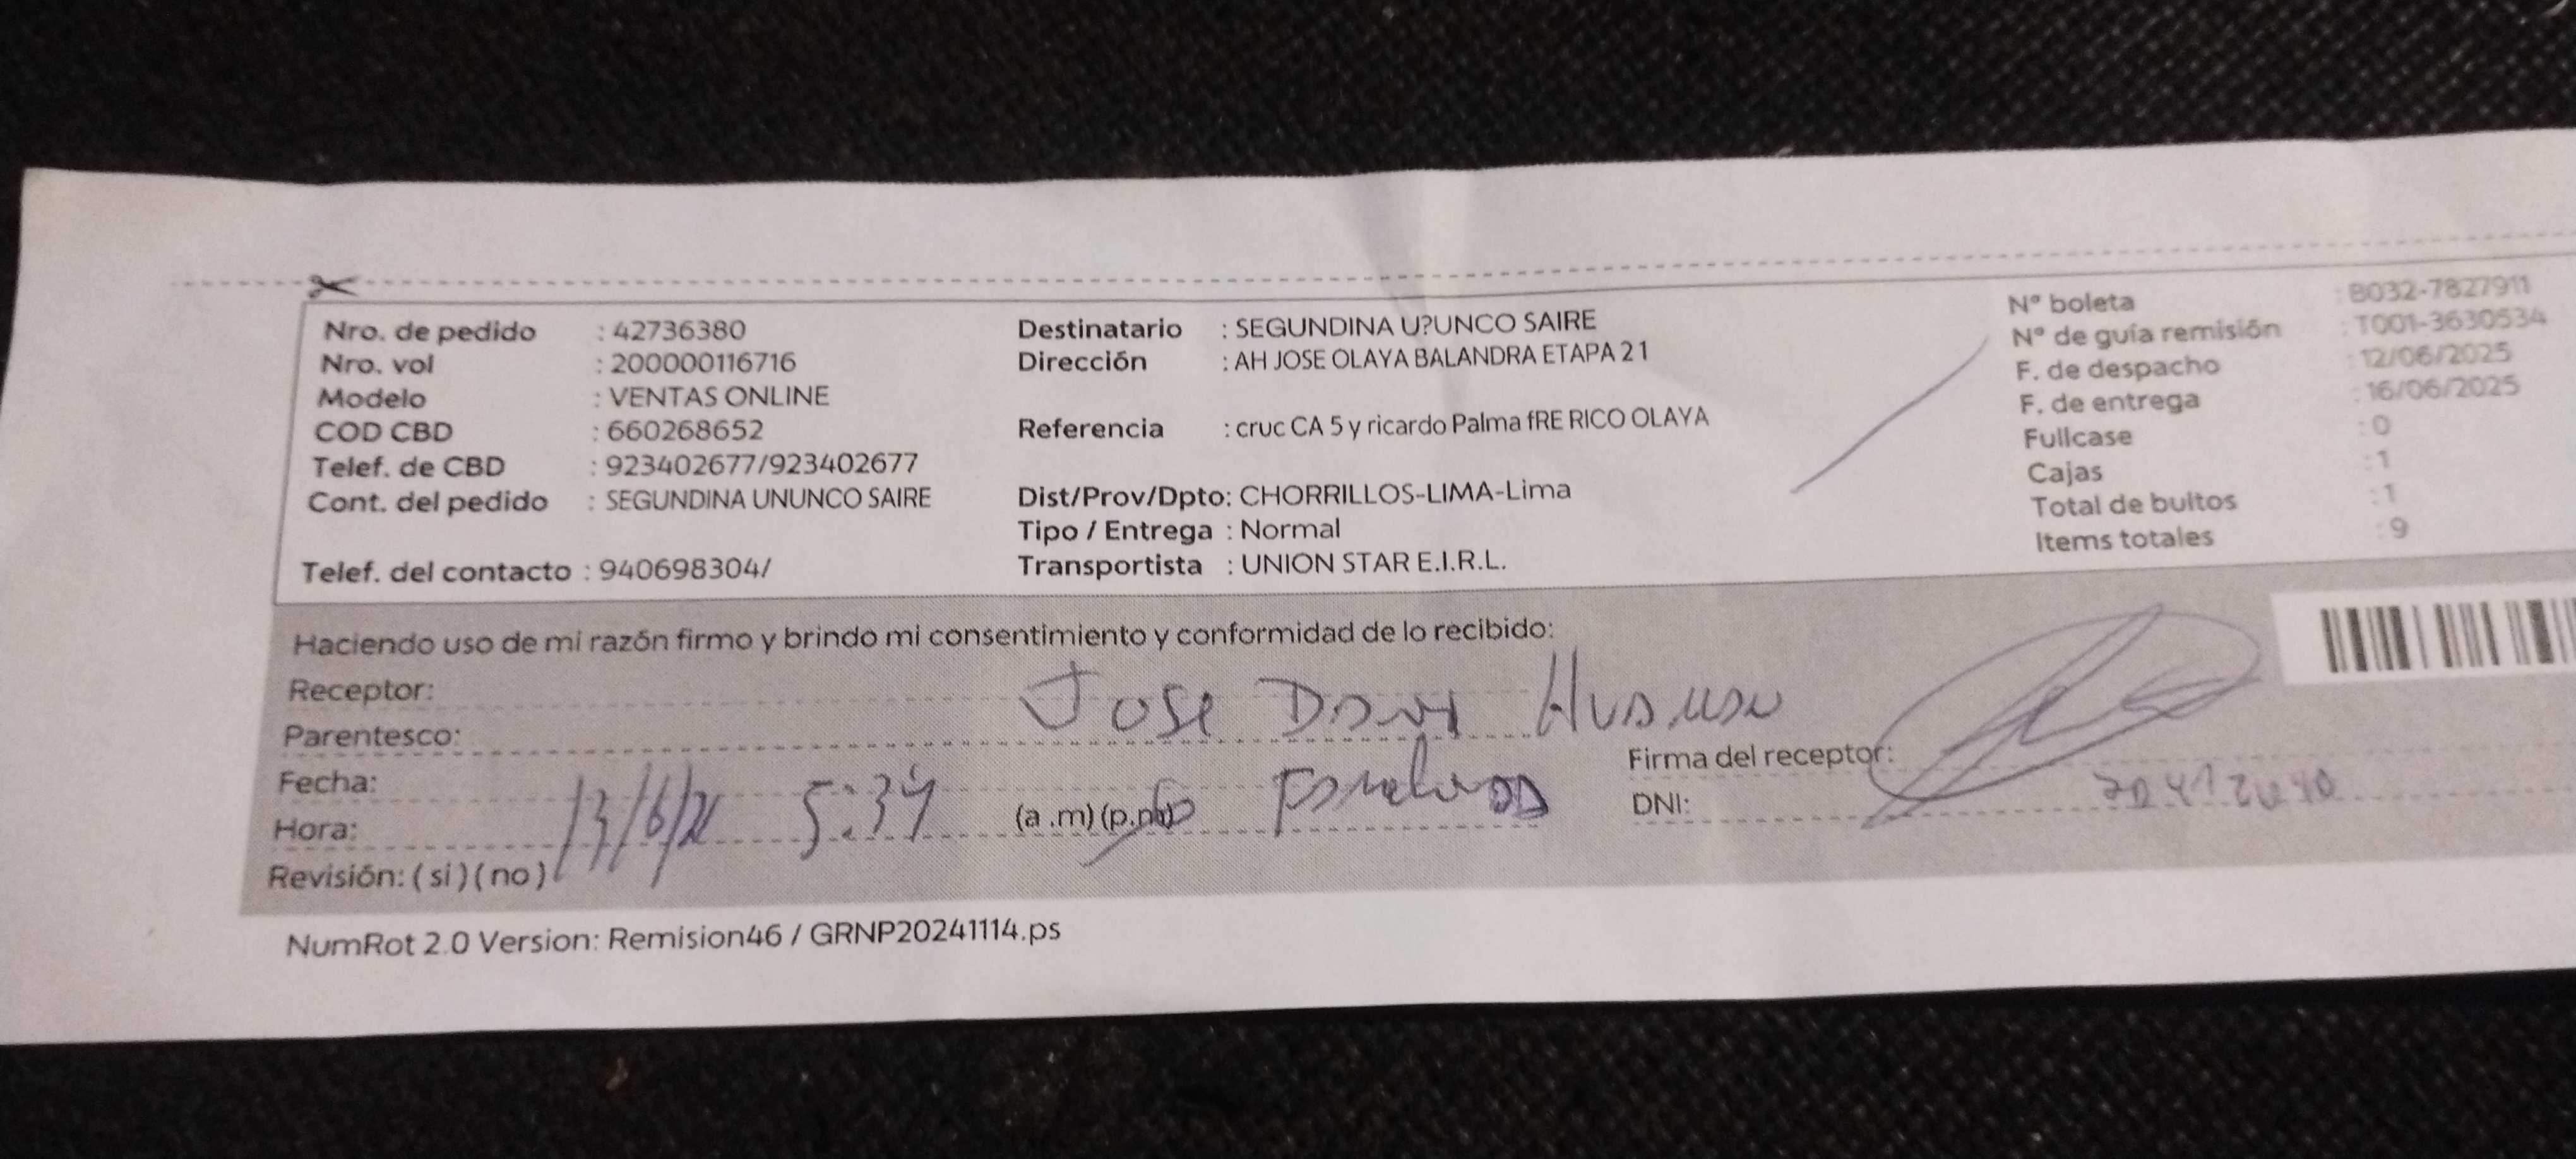 Nro. de pedido : 42736380
Nro. vol : 200000116716
Modelo : VENTAS ONLINE
COD CBD : 660268652
Telef. de CBD : 923402677/923402677
Cont. del pedido : SEGUNDINA UNUNCO SAIRE
Telef. del contacto : 940698304/
Destinatario : SEGUNDINA U?UNCO SAIRE
Dirección : AH JOSE OLAYA BALANDRA ETAPA 21
Referencia : cruc CA 5 y ricardo Palma fRE RICO OLAYA
Dist/Prov/Dpto: CHORRILLOS-LIMA-Lima
Tipo / Entrega : Normal
Transportista : UNION STAR E.I.R.L.
N° boleta : B032-7827911
N° de guía remisión : T001-3630534
F. de despacho : 12/06/2025
F. de entrega : 16/06/2025
Fullcase : 0
Cajas : 1
Total de bultos : 1
Items totales : 9
Haciendo uso de mi razón firmo y brindo mi consentimiento y conformidad de lo recibido:
Receptor: Jose
Parentesco:
Fecha:
Hora: 5:34 (a .m) (p.m)
Revisión: ( si ) ( no )
Firma del receptor:
DNI:
NumRot 2.0 Version: Remision46 / GRNP20241114.ps